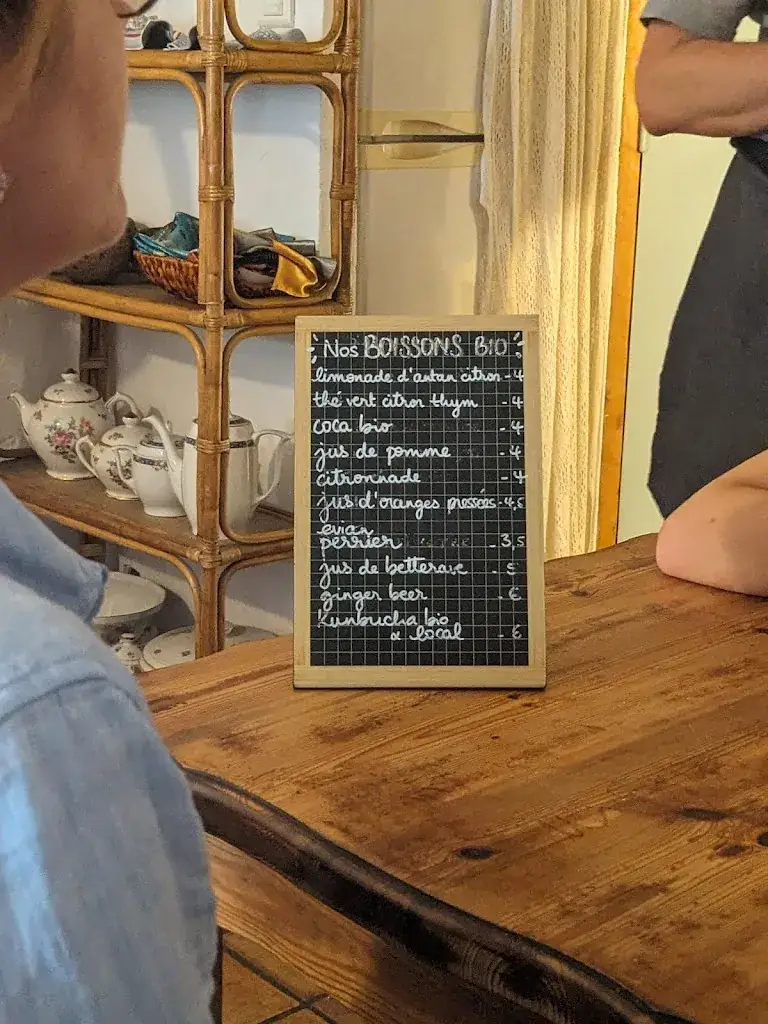 Nos BOISSONS BIO
limonade d'antan citron - 4
thé vert citron thym - 4
coca bio - 4
jus de pomme - 4
citronnade - 4
jus d'oranges pressées - 4,5
evian
perrier - 3,5
jus de betterave - 5
ginger beer - 6
Kunbucha bio
& local - 6